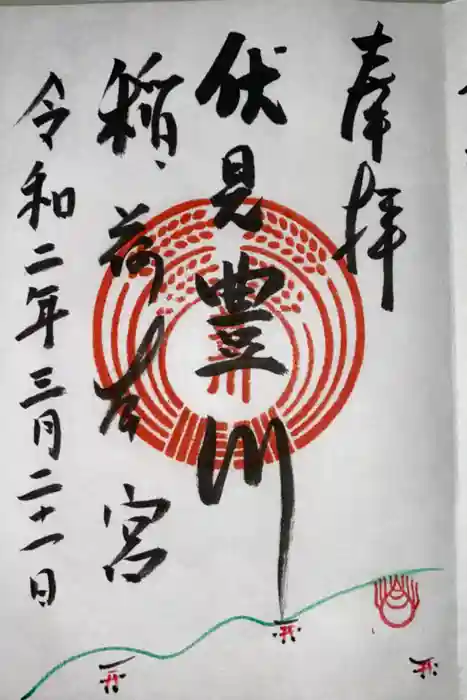 奉拝
伏見豊川
稲荷宮
令和二年三月二十一日